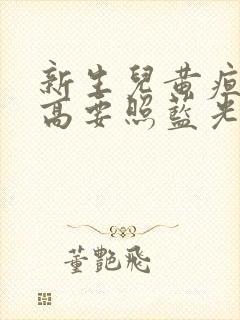 新生兒黃疸
高要照藍光
董艷飛